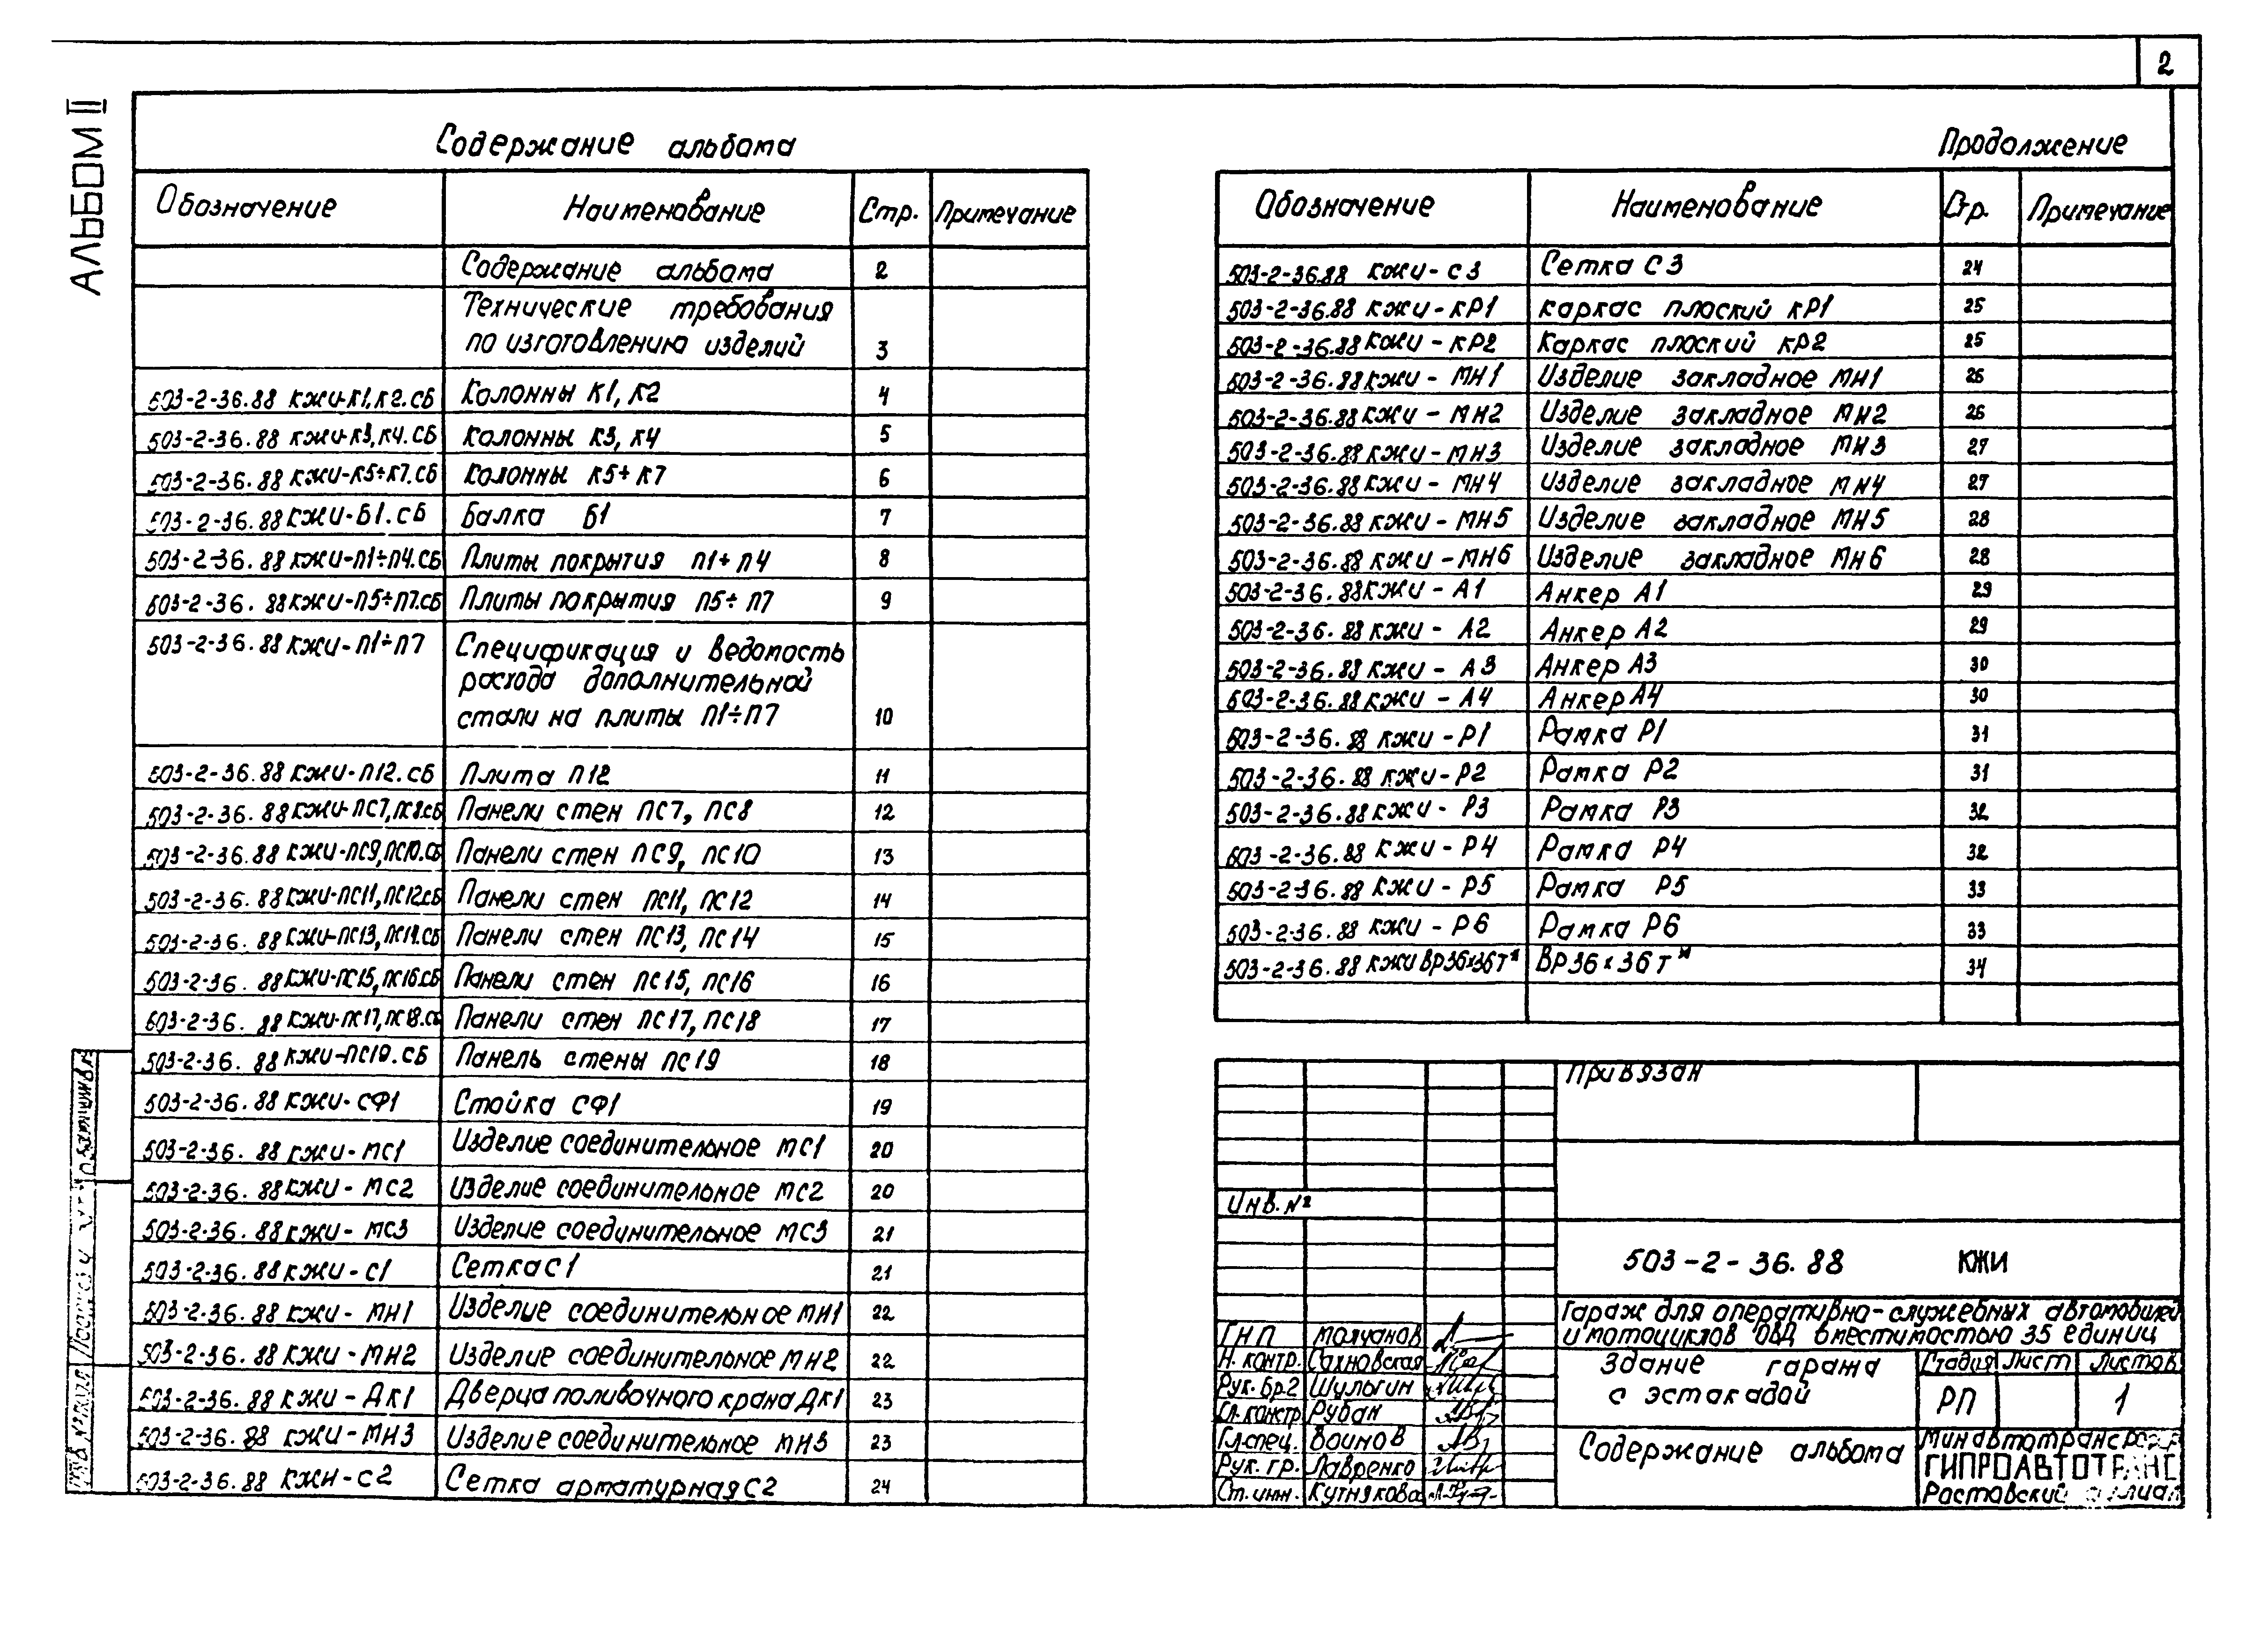 2
АЛЬБОМ II
Содержание альбома
Обозначение Наименование Стр. Примечание
Содержание альбома 2
Технические требования
по изготовлению изделий 3
503-2-36.88 КЖИ-К1,К2.СБ Колонны К1, К2 4
503-2-36.88 КЖИ-К3,К4.СБ Колонны К3, К4 5
503-2-36.88 КЖИ-К5÷К7.СБ Колонны К5÷К7 6
503-2-36.88 КЖИ-Б1.СБ Балка Б1 7
503-2-36.88 КЖИ-П1÷П4.СБ Плиты покрытия П1÷П4 8
503-2-36.88 КЖИ-П5÷П7.СБ Плиты покрытия П5÷П7 9
503-2-36.88 КЖИ-П1÷П7 Спецификация и ведомость
расхода дополнительной
стали на плиты П1÷П7 10
503-2-36.88 КЖИ-П12.СБ Плита П12 11
503-2-36.88 КЖИ-ПС7,ПС8.СБ Панели стен ПС7, ПС8 12
503-2-36.88 КЖИ-ПС9,ПС10.СБ Панели стен ПС9, ПС10 13
503-2-36.88 КЖИ-ПС11,ПС12.СБ Панели стен ПС11, ПС12 14
503-2-36.88 КЖИ-ПС13,ПС14.СБ Панели стен ПС13, ПС14 15
503-2-36.88 КЖИ-ПС15,ПС16.СБ Панели стен ПС15, ПС16 16
503-2-36.88 КЖИ-ПС17,ПС18.СБ Панели стен ПС17, ПС18 17
503-2-36.88 КЖИ-ПС19.СБ Панель стены ПС19 18
503-2-36.88 КЖИ-СФ1 Стойка СФ1 19
503-2-36.88 КЖИ-МС1 Изделие соединительное МС1 20
503-2-36.88 КЖИ-МС2 Изделие соединительное МС2 20
503-2-36.88 КЖИ-МС3 Изделие соединительное МС3 21
503-2-36.88 КЖИ-С1 Сетка С1 21
503-2-36.88 КЖИ-МН1 Изделие соединительное МН1 22
503-2-36.88 КЖИ-МН2 Изделие соединительное МН2 22
503-2-36.88 КЖИ-ДК1 Дверца поливочного крана ДК1 23
503-2-36.88 КЖИ-МН3 Изделие соединительное МН3 23
503-2-36.88 КЖИ-С2 Сетка арматурная С2 24
Продолжение
Обозначение Наименование Стр. Примечание
503-2-36.88 КЖИ-С3 Сетка С3 24
503-2-36.88 КЖИ-КР1 Каркас плоский КР1 25
503-2-36.88 КЖИ-КР2 Каркас плоский КР2 25
503-2-36.88 КЖИ-МН1 Изделие закладное МН1 26
503-2-36.88 КЖИ-МН2 Изделие закладное МН2 26
503-2-36.88 КЖИ-МН3 Изделие закладное МН3 27
503-2-36.88 КЖИ-МН4 Изделие закладное МН4 27
503-2-36.88 КЖИ-МН5 Изделие закладное МН5 28
503-2-36.88 КЖИ-МН6 Изделие закладное МН6 28
503-2-36.88 КЖИ-А1 Анкер А1 29
503-2-36.88 КЖИ-А2 Анкер А2 29
503-2-36.88 КЖИ-А3 Анкер А3 30
503-2-36.88 КЖИ-А4 Анкер А4 30
503-2-36.88 КЖИ-Р1 Рамка Р1 31
503-2-36.88 КЖИ-Р2 Рамка Р2 31
503-2-36.88 КЖИ-Р3 Рамка Р3 32
503-2-36.88 КЖИ-Р4 Рамка Р4 32
503-2-36.88 КЖИ-Р5 Рамка Р5 33
503-2-36.88 КЖИ-Р6 Рамка Р6 33
503-2-36.88 КЖИ ВР36х36Ти ВР36х36Ти 34
Привязан
Инв. №
503-2-36.88 КЖИ
Гараж для оперативно-служебных автомобилей
и мотоциклов ОВД вместимостью 35 единиц
ГИП Молчанов
Н. контр. Сахновская
Рук. бр.2 Шулогин
Гл. констр Рубан
Гл. спец. Воинов
Рук. гр. Лавренко
Ст. инж. Кутнякова
Здание гаража
с эстакадой
Стадия Лист Листов
РП 1
Содержание альбома
Минавтотранс РСФСР
ГИПРОАВТОТРАНС
Ростовский филиал